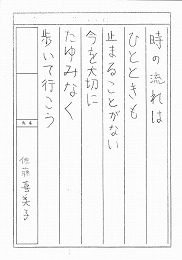 時の流れは
ひとときも
止まることがない
今を大切に
たゆみなく
歩いて行こう
氏名
佐藤喜美子